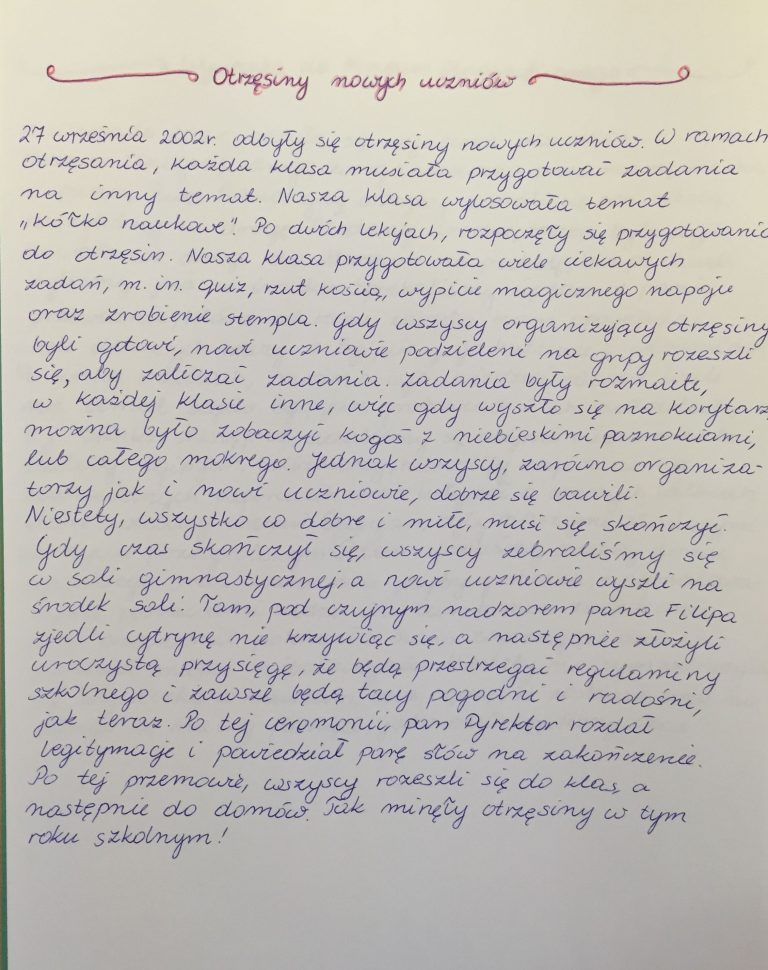 Otrzęsiny nowych uczniów
27 września 2002r. odbyły się otrzęsiny nowych uczniów. W ramach
otrzęsania, każda klasa musiała przygotować zadania
na inny temat. Nasza klasa wylosowała temat
„Kółko naukowe". Po dwóch lekcjach, rozpoczęły się przygotowania
do otrzęsin. Nasza klasa przygotowała wiele ciekawych
zadań, m.in. quiz, rzut kością, wypicie magicznego napoju
oraz zrobienie stempla. Gdy wszyscy organizujący otrzęsiny
byli gotowi, nowi uczniowie podzieleni na grupy rozeszli
się, aby zaliczać zadania. Zadania były rozmaite,
w każdej klasie inne, więc gdy wyszło się na korytarz,
można było zobaczyć kogoś z niebieskimi paznokciami,
lub całego mokrego. Jednak wszyscy, zarówno organiza-
torzy jak i nowi uczniowie, dobrze się bawili.
Niestety, wszystko co dobre i miłe, musi się skończyć.
Gdy czas skończył się, wszyscy zebraliśmy się
w sali gimnastycznej, a nowi uczniowie wyszli na
środek sali. Tam, pod czujnym nadzorem pana Filipa
zjedli cytrynę nie krzywiąc się, a następnie złożyli
uroczystą przysięgę, że będą przestrzegać regulaminy
szkolnego i zawsze będą tacy pogodni i radośni,
jak teraz. Po tej ceremonii, pan Dyrektor rozdał
legitymacje i powiedział parę słów na zakończenie.
Po tej przemowie, wszyscy rozeszli się do klas, a
następnie do domów. Tak minęły otrzęsiny w tym
roku szkolnym!